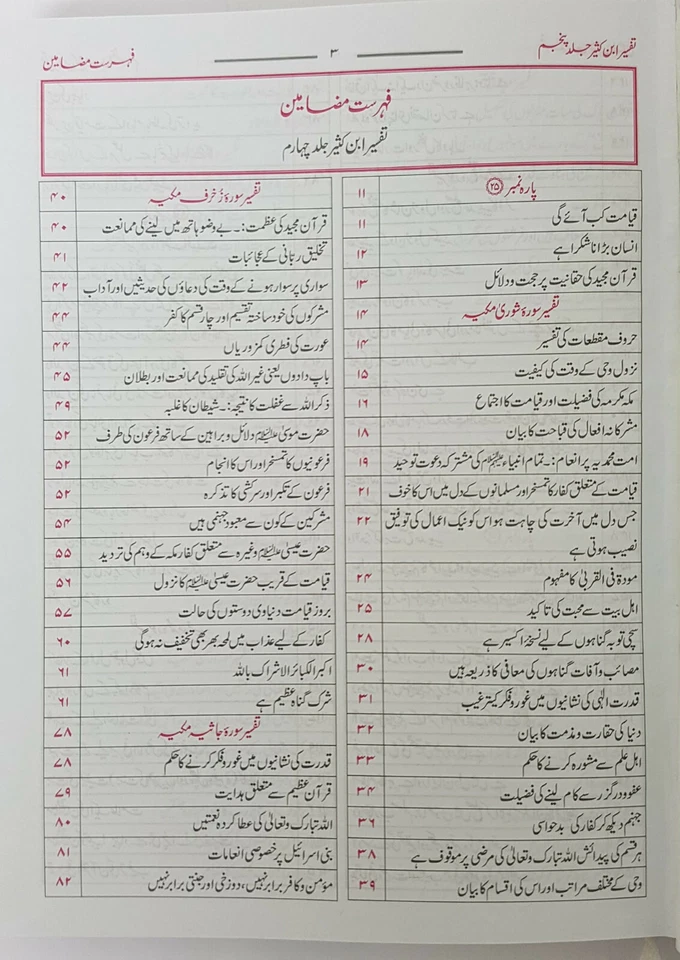 تفسیر ابن کثیر جلد پنجم ۳ فہرست مضامین
فہرست مضامین
تفسیر ابن کثیر جلد چہارم
پارہ نمبر ۲۵ ۱۱
قیامت کب آئے گی ۱۱
انسان بڑا ناشکرا ہے ۱۲
قرآن مجید کی حقانیت پر حجت و دلائل ۱۳
تفسیر سورۂ شوریٰ مکیہ ۱۴
حروف مقطعات کی تفسیر ۱۴
نزول وحی کے وقت کی کیفیت ۱۵
مکہ مکرمہ کی فضیلت اور قیامت کا اجتماع ۱۶
مشرکانہ افعال کی قباحت کا بیان ۱۸
امت محمدیہ پر انعام:۔ تمام انبیاء علیہم السلام کی مشترکہ دعوت توحید ۱۹
قیامت کے متعلق کفار کا تمسخر اور مسلمانوں کے دل میں اس کا خوف ۲۱
جس دل میں آخرت کی چاہت ہو اس کو نیک اعمال کی توفیق ۲۲
نصیب ہوتی ہے
مودۃ فی القربیٰ کا مفہوم ۲۴
اہل بیت سے محبت کی تاکید ۲۵
سچی توبہ گناہوں کے لیے نسخۂ اکسیر ہے ۲۸
مصائب و آفات گناہوں کی معافی کا ذریعہ ہیں ۳۰
قدرت الٰہی کی نشانیوں میں غور و فکر کیترغیب ۳۱
دنیا کی حقارت و مذمت کا بیان ۳۲
اہل علم سے مشورہ کرنے کا حکم ۳۳
عفو و درگزر سے کام لینے کی فضیلت ۳۴
جہنم دیکھ کر کفار کی بدحواسی ۳۶
ہر قسم کی پیدائش اللہ تبارک و تعالیٰ کی مرضی پر موقوف ہے ۳۸
وحی کے مختلف مراتب اور اس کی اقسام کا بیان ۳۹
تفسیر سورۂ زخرف مکیہ ۴۰
قرآن مجید کی عظمت:۔ بے وضو ہاتھ میں لینے کی ممانعت ۴۰
تخلیق ربانی کے عجائبات ۴۱
سواری پر سوار ہونے کے وقت کی دعاؤں کی حدیثیں اور آداب ۴۲
مشرکوں کی خود ساختہ تقسیم اور چار قسم کا کفر ۴۴
عورت کی فطری کمزوریاں ۴۴
باپ دادوں یعنی غیر اللہ کی تقلید کی ممانعت اور بطلان ۴۵
ذکر اللہ سے غفلت کا نتیجہ:۔ شیطان کا غلبہ ۴۹
حضرت موسیٰ علیہ السلام دلائل و براہین کے ساتھ فرعون کی طرف ۵۲
فرعونیوں کا تمسخر اور اس کا انجام ۵۲
فرعون کے تکبر اور سرکشی کا تذکرہ ۵۲
مشرکین کے کون سے معبود جہنمی ہیں ۵۴
حضرت عیسیٰ علیہ السلام وغیرہ سے متعلق کفار مکہ کے وہم کی تردید ۵۵
قیامت کے قریب حضرت عیسیٰ علیہ السلام کا نزول ۵۶
بروز قیامت دنیاوی دوستوں کی حالت ۵۷
کفار کے لیے عذاب میں لمحہ بھر بھی تخفیف نہ ہوگی ۶۰
اکبر الکبائر الاشراک باللہ ۶۱
شرک گناہ عظیم ہے ۶۱
تفسیر سورۂ جاثیہ مکیہ ۷۸
قدرت کی نشانیوں میں غور و فکر کرنے کا حکم ۷۸
قرآن عظیم سے متعلق ہدایت ۷۹
اللہ تبارک و تعالیٰ کی عطا کردہ نعمتیں ۸۰
بنی اسرائیل پر خصوصی انعامات ۸۱
مؤمن و کافر برابر نہیں، دوزخی اور جنتی برابر نہیں ۸۲